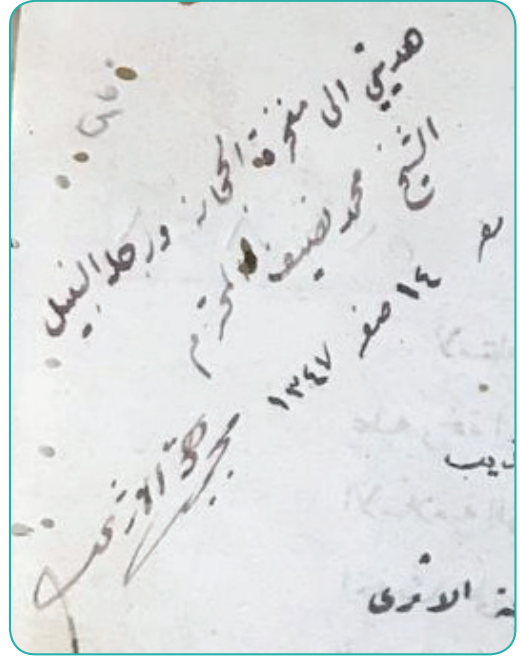 هديتي الى مفخرة الحجاز ورجله النبيل
الشيخ محمد نصيف المحترم
١٤ صفر ١٣٤٧
محمد بهجة الاثري
ذيب
ـة الاثرى